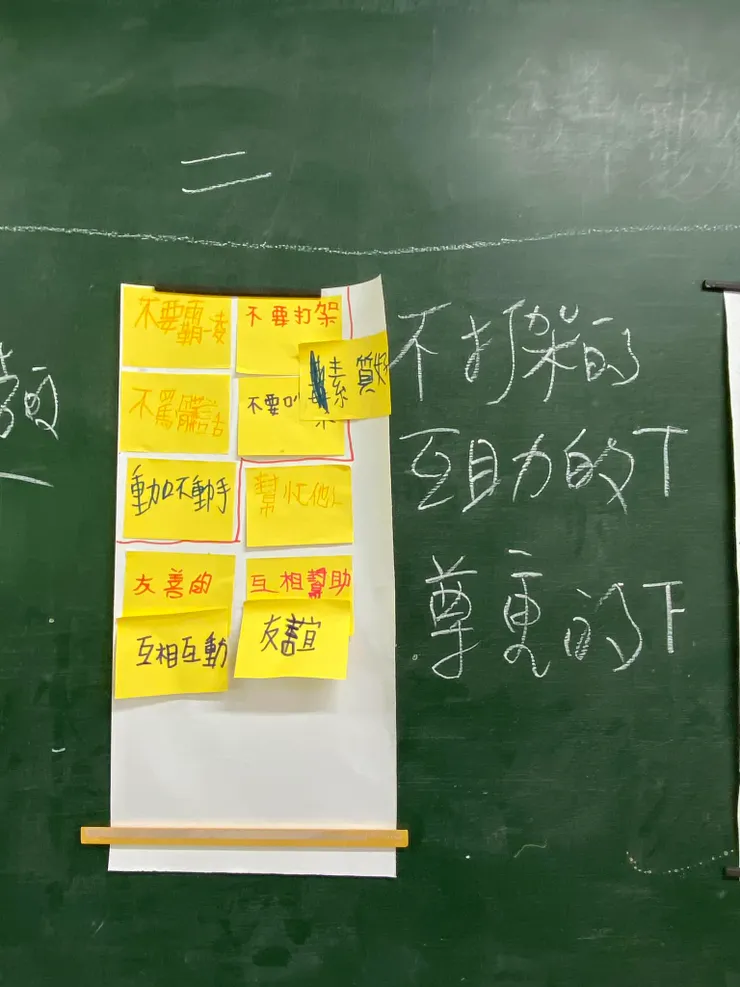 二
不要霸凌
不要打架
素質好
不罵髒話
不要
動口不動手
幫忙他人
友善的
互相幫助
互相互動
友誼
不打架的
互助的T
尊重的T
的